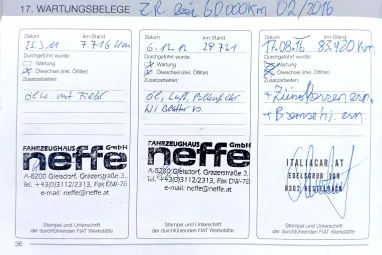 17. WARTUNGSBELEGE ZR bei 60000km 02/2016
Datum km-Stand
25.3.11 7716 km
Durchgeführt wurde:
Wartung
Ölwechsel (inkl. Ölfilter)
Zusatzarbeiten:
ölw. mit Filter
FAHRZEUGHAUS GmbH
neffe
A-8200 Gleisdorf, Grazerstraße 3,
Tel. +43(0)3112/2313, Fax DW-78
e-mail: neffe@neffe.at
Stempel und Unterschrift
der durchführenden FIAT Werkstätte
Datum km-Stand
6.12.12 28731
Durchgeführt wurde:
Wartung
Ölwechsel (inkl. Ölfilter)
Zusatzarbeiten:
öl, Luft, Pollenfilter
FAHRZEUGHAUS GmbH
neffe
A-8200 Gleisdorf, Grazerstraße 3,
Tel. +43(0)3112/2313, Fax DW-78
e-mail: neffe@neffe.at
Stempel und Unterschrift
der durchführenden FIAT Werkstätte
Datum km-Stand
17.08.16 83.920 km
Durchgeführt wurde:
Wartung
Ölwechsel (inkl. Ölfilter)
Zusatzarbeiten:
+ Zündkerzen ern.
+ Bremsfl. ern.
ITALIACAR.AT
EDELSGRUB
8302 NESTELBACH
Stempel und Unterschrift
der durchführenden FIAT Werkstätte
36